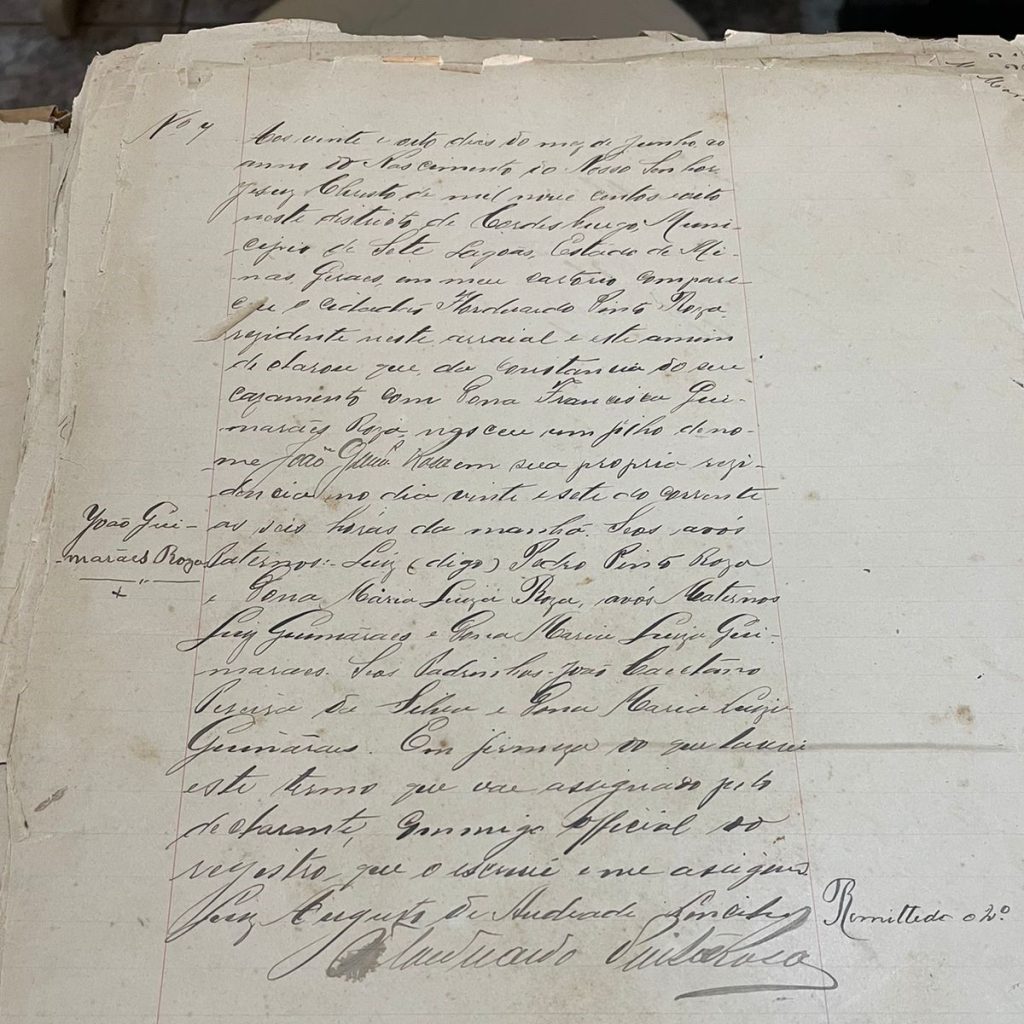 Nº 7
Aos vinte e oito dias do mez de Junho, do
anno do Nascimento do Nosso Senhor
Jesuz Christo de mil nove centos e oito
neste districto de Cordisburgo, Muni-
cipio de Sete Lagoas, Estado de Mi-
nas, Geraes, em meu cartorio compare-
ceu o cidadão Floduardo Pinto Roza,
rezidente neste arraial e este a mim
declarou que, da constancia do seu
cazamento com Dona Francisca Gui-
marães Roza, nasceu um filho de no-
me João Guimˢ Rosa em sua propria rezi-
dencia no dia vinte e sete do corrente
as seis horas da manhã. Seos avós
Paternos:- Luiz (digo) Pedro Pinto Roza
e Dona Maria Luiza Roza, avós Maternos
Luiz Guimarães e Dona Maria Luiza Gui-
marães. Seos Padrinhos. João Caetano
Pereira da Silva e Dona Maria Luiza
Guimarães. Em firmeza do que lavrei
este termo que vae assignado pelo
declarante, commigo Official do
registro, que o escrevi e me assigno
Luiz Augusto de Andrade
Floduardo Pinto Rosa
João Gui-
marães Roza
+
Remittedo o 2º